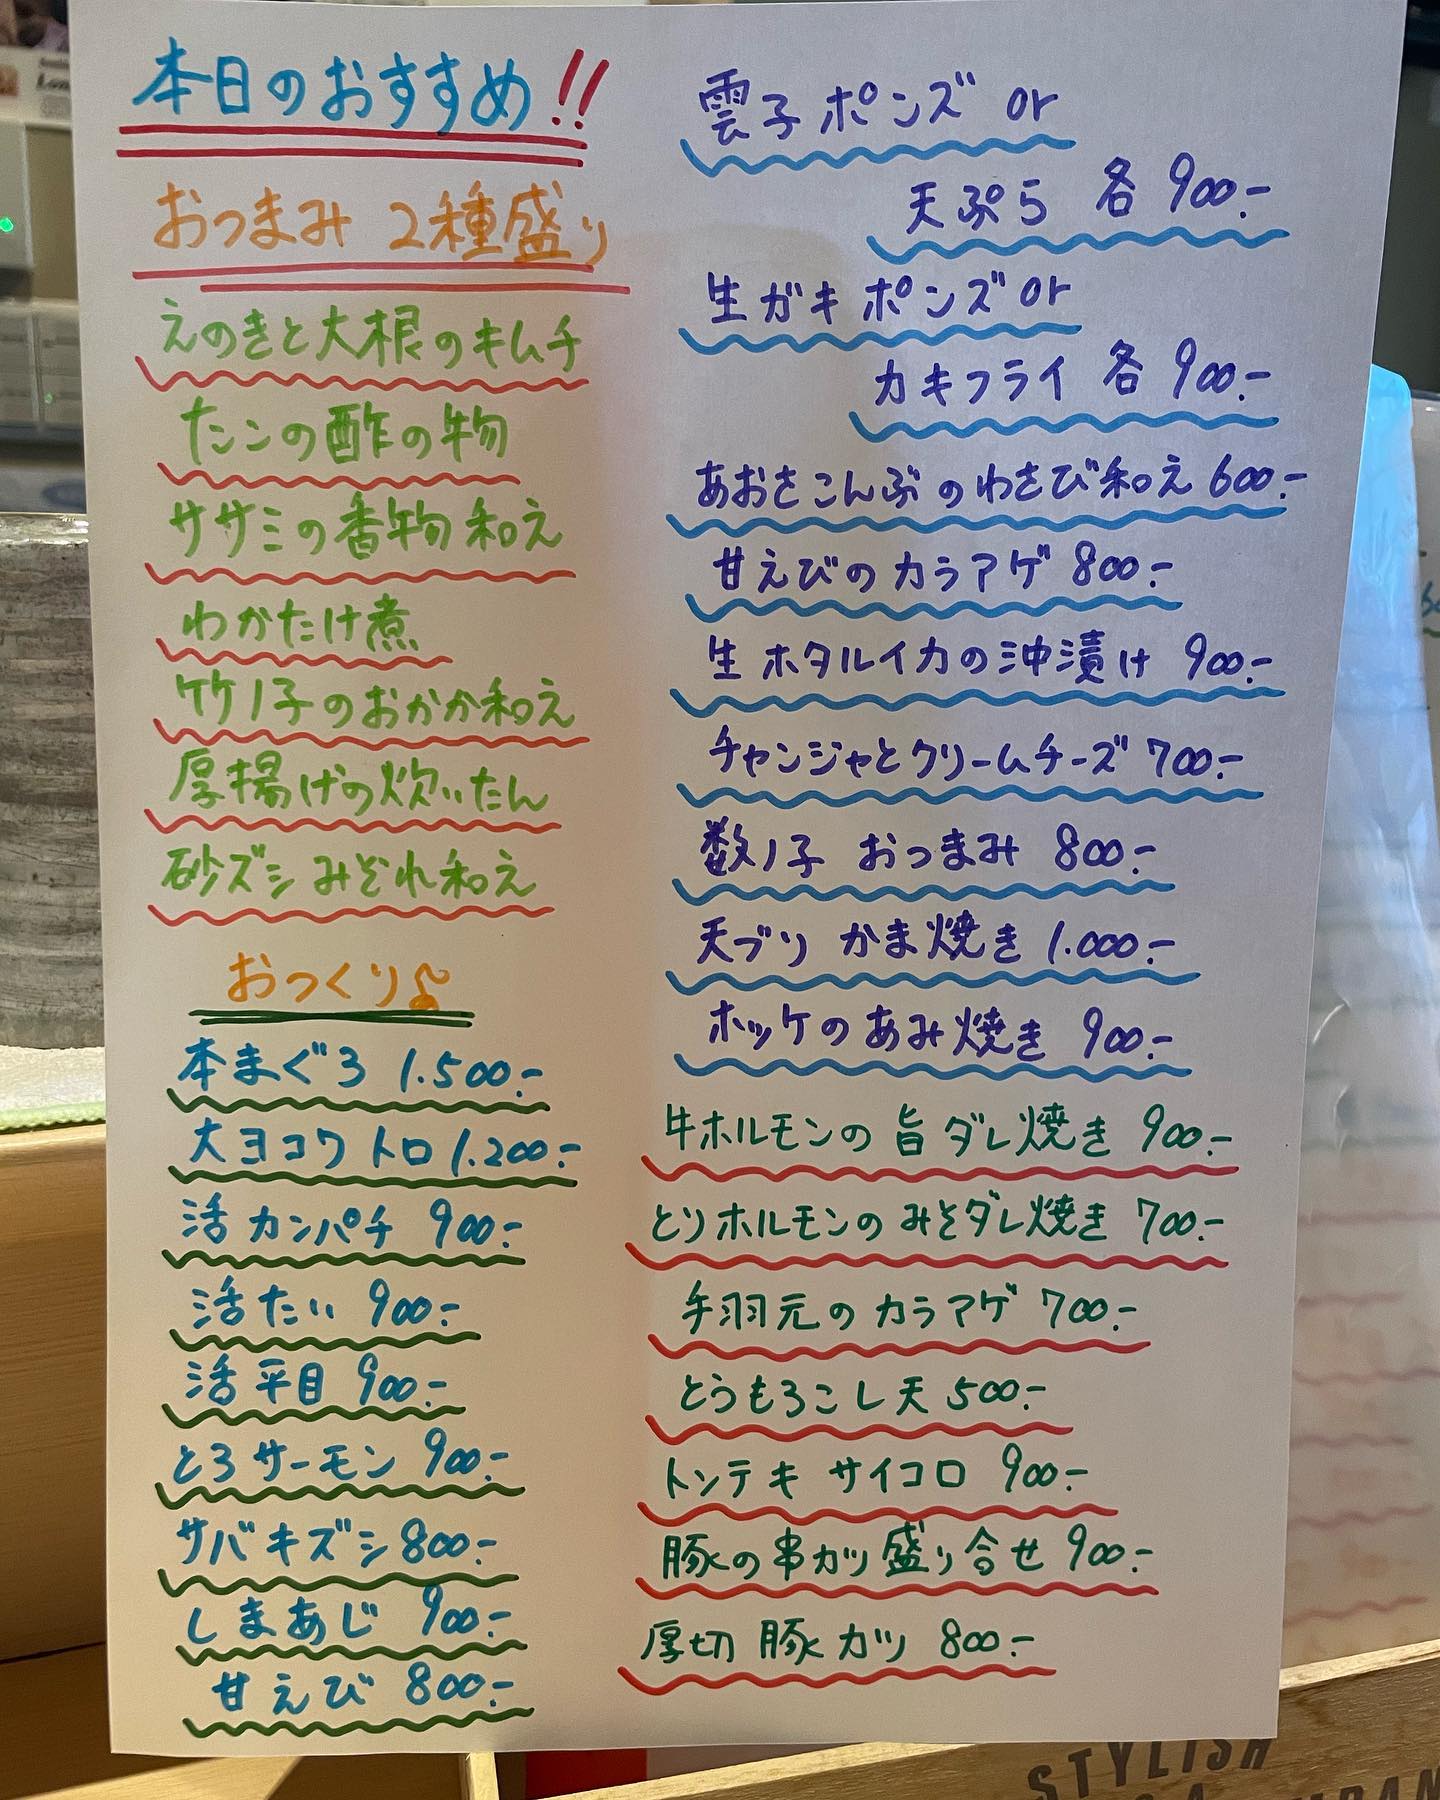 本日のおすすめ!!
おつまみ 2種盛り
えのきと大根のキムチ
タコの酢の物
ササミの香物和え
わかたけ煮
竹ノ子のおかか和え
厚揚げの炊いたん
砂ズシみぞれ和え
おつくり♪
本まぐろ 1.500.-
大ヨコワトロ 1.200.-
活カンパチ 900.-
活たい 900.-
活平目 900.-
とろサーモン 900.-
サバキズシ 800.-
しまあじ 900.-
甘えび 800.-
雲子ポンズ or
天ぷら 各 900.-
生ガキポンズ or
カキフライ 各 900.-
あおさこんぶのわさび和え 600.-
甘えびのカラアゲ 800.-
生ホタルイカの沖漬け 900.-
チャンジャとクリームチーズ 700.-
数ノ子 おつまみ 800.-
天ブリ かま焼き 1.000.-
ホッケのあみ焼き 900.-
牛ホルモンの旨ダレ焼き 900.-
とりホルモンのみそダレ焼き 700.-
手羽元のカラアゲ 700.-
とうもろこし天 500.-
トンテキ サイコロ 900.-
豚の串カツ盛り合せ 900.-
厚切 豚カツ 800.-
STYLISH